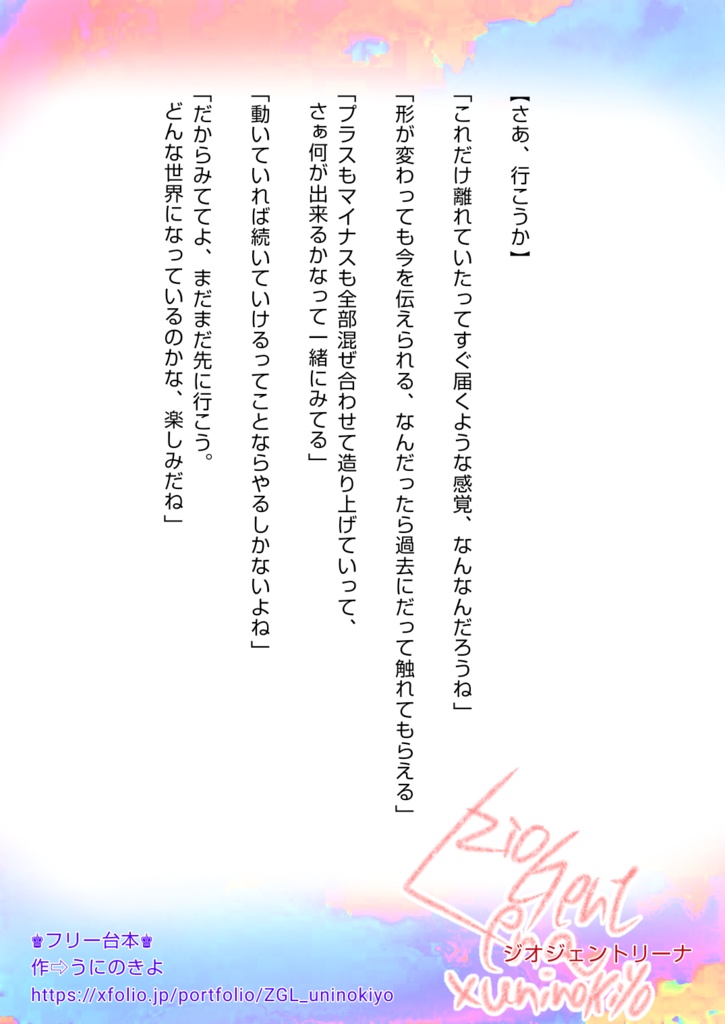 【さあ、行こうか】
「これだけ離れていたってすぐ届くような感覚、なんなんだろうね」
「形が変わっても今を伝えられる、なんだったら過去にだって触れてもらえる」
「プラスもマイナスも全部混ぜ合わせて造り上げていって、
さぁ何が出来るかなって一緒にみてる」
「動いていれば続いていけるってことならやるしかないよね」
「だからみててよ、まだまだ先に行こう。
どんな世界になっているのかな、楽しみだね」
♚フリー台本♚
作⇨うにのきよ
https://xfolio.jp/portfolio/ZGL_uninokiyo
ジオジェントリーナ
xuninokiyo